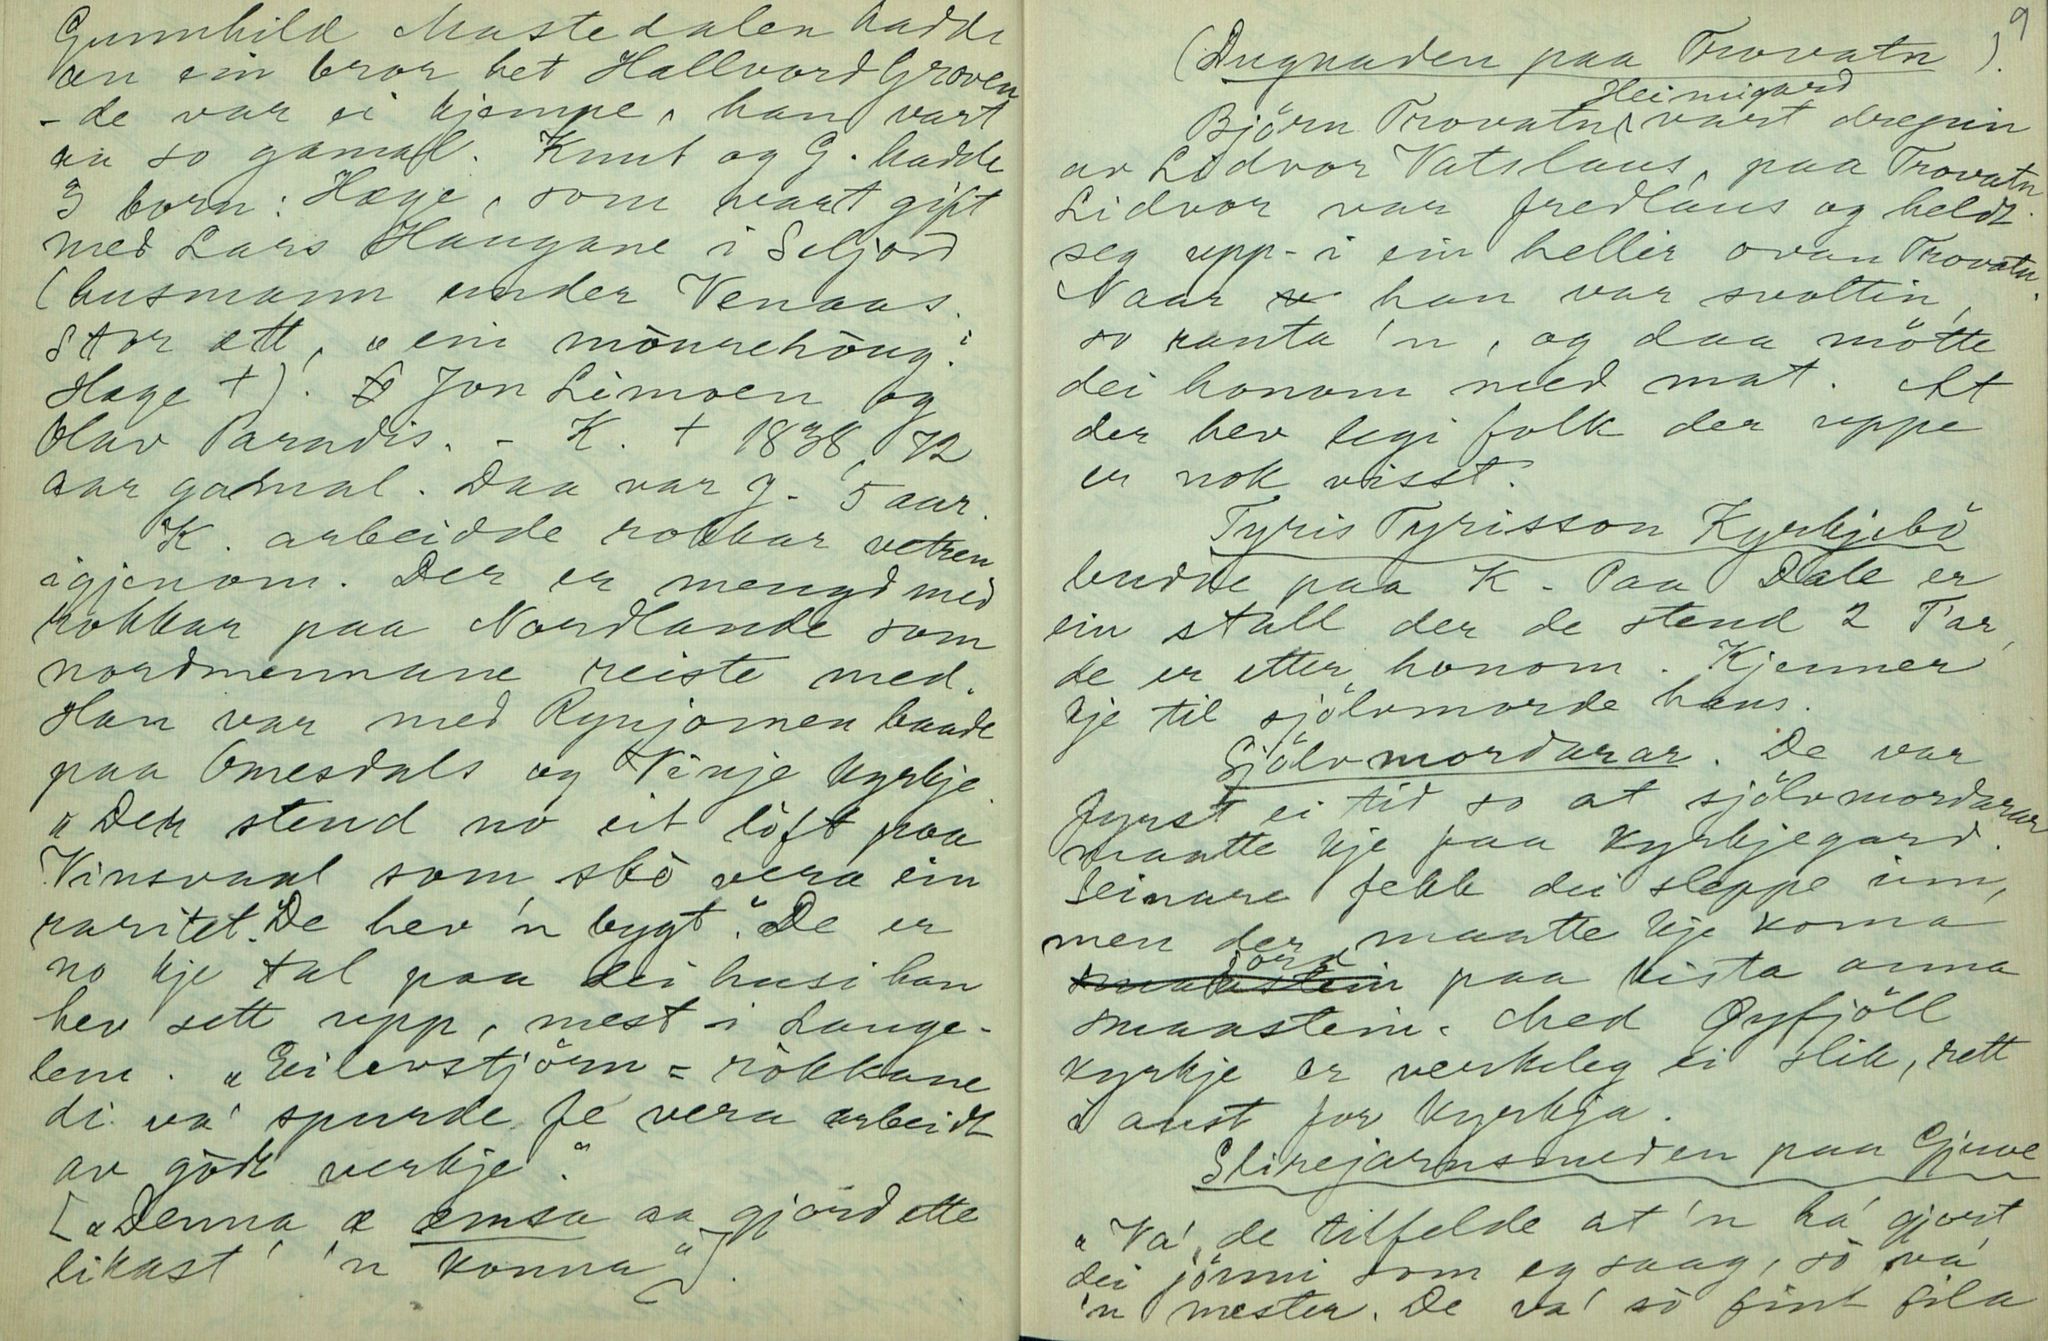 Gunnhild Mastedalen hadde
æn ein bror het Hallvord Groven
- de var ei kjempe, han vart
au so gamal. Knut og G. hadde
3 born: Hæge, som vart gift
med Lars Haugane i Seljord
(husmann under Venaas.
Stor ætt, "ein mòurehòug."
Hæge +). Jon Limoen og
Olav Paradis. - K. + 1838, 72
aar gamal. Daa var g. 5 aar.
K. arbeidde rokkar vetren
igjenom. Der er mengd med
rokkar paa Nordlande som
nordmennane reiste med.
Han var med Rynjomen baade
paa Omesdals og Vinje kyrkje
"Der stend no eit loft paa
Vinsvaal som skò vera ein
raritet. De hev 'n bygt". De er
no kje tal paa dei husi han
hev sett upp, mest i Lauge-
lem. "Eilevstjörn-rokkane
di va' spurde fe vera arbeidt
av gòdt verkje."
["Denna æ æmsa aa gjord ette
likast' 'n konna"].
9
(Dugnaden paa Trovatn).
Heimigard
Björn Trovatn vart dregin
av Lidvor Vatslaus, paa Trovatn.
Lidvor var fredlaus og heldt
seg upp i ein hellir ovan Trovatn.
Naar han var svoltin,
so ranta 'n, og daa mötte
dei honom med mat. At
der hev legi folk der uppe
er nok visst.
Tyris Tyrisson Kyrkjebö
budde paa K. Paa Dale er
ein stall der de stend 2 T'ar,
de er etter honom. Kjenner
kje til sjölvmorde hans.
Sjölvmordarar. De var
fyrst ei tid so at sjölvmordarar
maatte kje paa kyrkjegard.
Seinare fekk dei sleppe inn,
men der maatte kje koma
jord
smaastein paa kista anna
smaastein. Med Øyfjöll
kyrkje er verkeleg ei slik, rett
i aust for kyrkja.
Slirejarnsmeden paa Gjuve
"Va' de tilfelde at 'n ha' gjort
dei jönni som eg saag, sò va'
'n mester. De va' sò fint fila